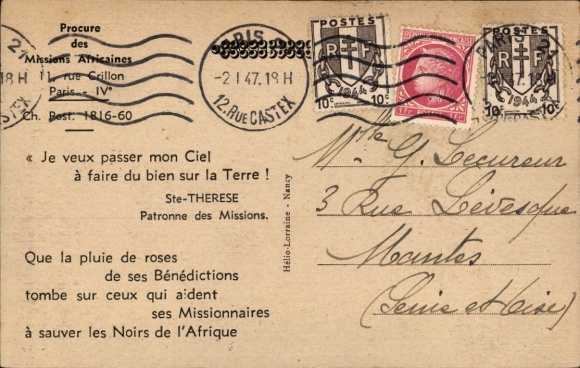 Procure
des
Missions Africaines
11, rue Crillon
Paris - IVe
Ch. Post. 1816-60
21
18 H
PARIS
-2 1 47. 18 H
12. RUE CASTEX
POSTES
RF
1944
10c 10c
FRANÇAISE
POSTES
RF
1944
10c 10c
« Je veux passer mon Ciel
à faire du bien sur la Terre !
Ste-THERESE
Patronne des Missions.
Que la pluie de roses
de ses Bénédictions
tombe sur ceux qui aident
ses Missionnaires
à sauver les Noirs de l'Afrique
Hélio-Lorraine - Nancy
Mlle G. Lecureur
3 Rue Lévesque
Mantes
(Seine et Oise)